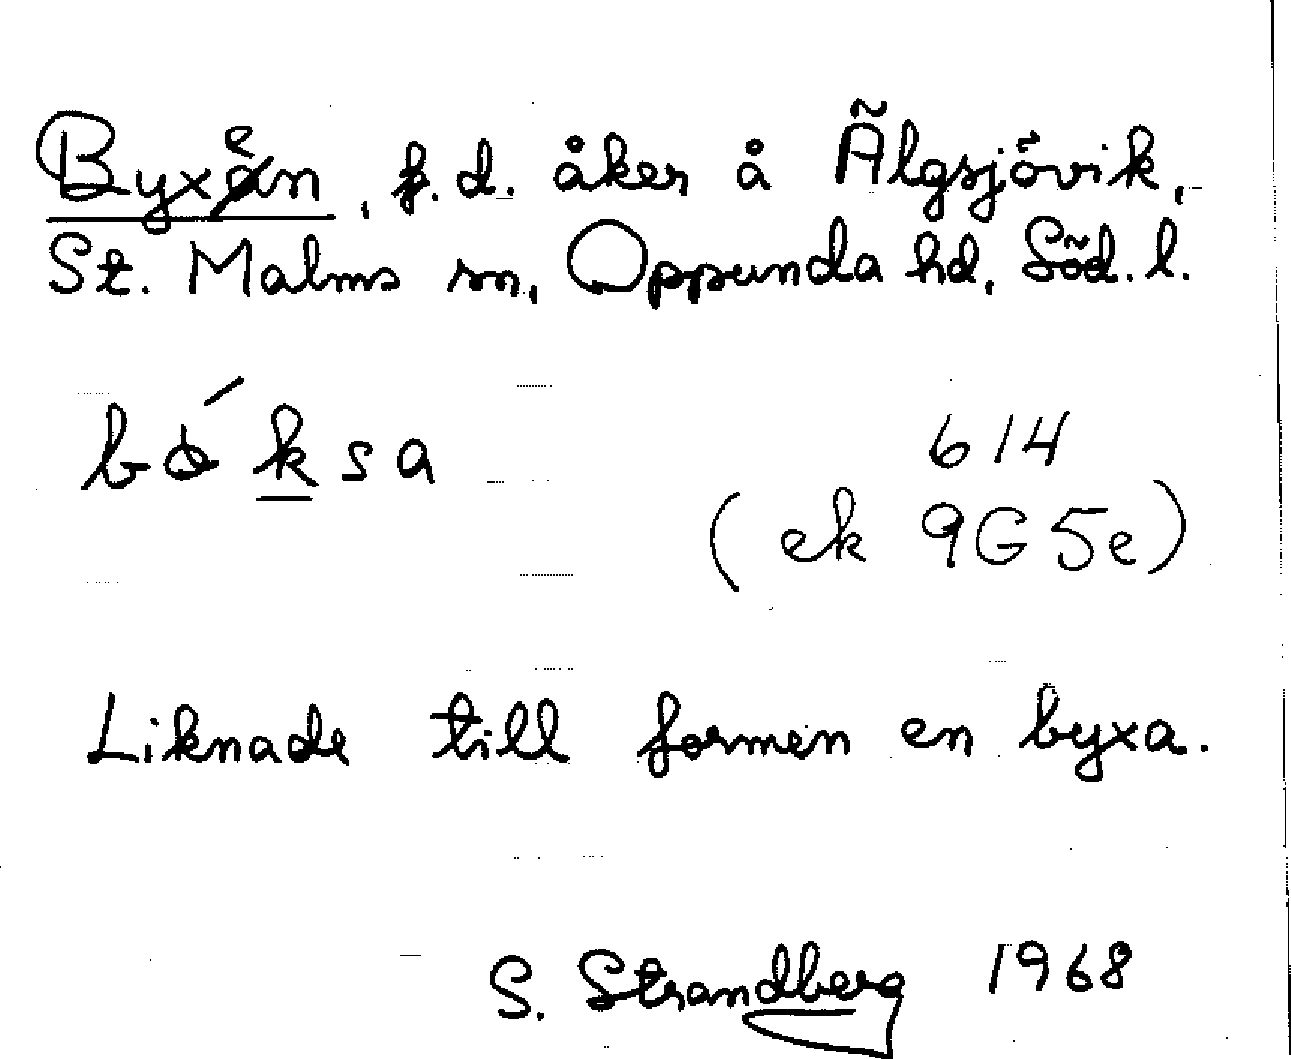 Byxen, f.d. åker å Älgsjövik,
St. Malms sn, Oppunda hd, Söd. l.
614
(ek 9G5e)
Liknade till formen en byxa.
S. Strandberg 1968